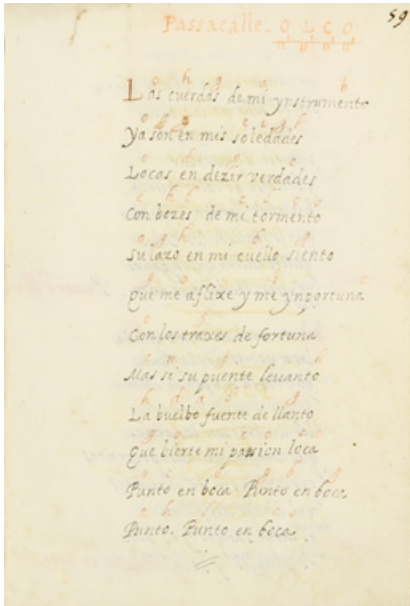 59
Passacalle. O L C O
Las cuerdas de mi ynstrumento
Ya son en mis soledades
Locas en dezir verdades
Con bozes de mi tormento
Su lazo en mi cuello siento
Que me aflixe y me ynportuna
Con los traxes de fortuna
Mas si su puente leuanto
La buelbo fuente de llanto
Que bierte mi passion loca
Punto en boca Punto en boca
Punto. Punto en boca